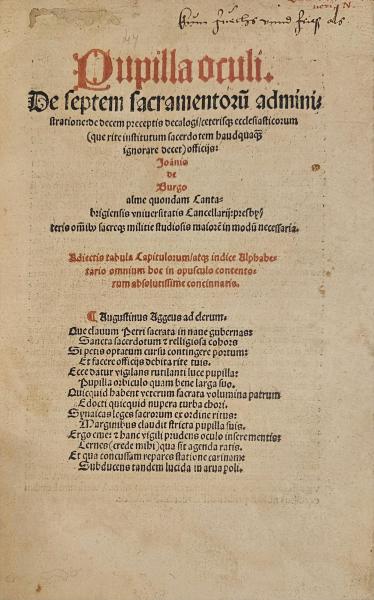 Pupilla oculi.
De septem sacramentorū admini-
stratione: de decem preceptis decalogi/ceterisq; ecclesiasticorum
(que rite institutum sacerdotem haudquaq̄
ignorare decet) officijs:
Joānis
de
Burgo
alme quondam Canta-
brigiensis vniuersitatis Cancellarij: presby
teris omībꝰ sacreq; militie studiosis maiorē in modū necessaria.
Adiectis tabula Capitulorum/atq; indice Alphabe-
tario omnium hoc in opusculo contento-
rum absolutissime concinnatis.
¶ Augustinus Aggeus ad clerum.
Que clauum Petri sacrata in naue gubernas:
Sancta sacerdotum & relligiosa cohors
Si petis optatum cursu contingere portum:
Et facere officijs debita rite tuis.
Ecce datur vigilans rutilanti luce pupilla:
Pupilla orbiculo quam bene larga suo.
Quicquid habent veterum sacrata volumina patrum
Edocti quicquid nupera turba chori.
Synaicas leges sacrorum ex ordine ritus:
Marginibus claudit stricta pupilla suis.
Ergo eme: & hanc vigili prudens oculo insere mentis:
Cernes (crede mihi) qua sit agenda ratis.
Et qua concussam repares statione carinam:
Subducens tandem lucida in arua poli.